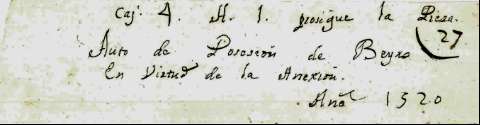 Caj. 4. N. 1. prosigue la Pieza.
27
Auto de Posesión de Beyro
En Virtud de la Anexion.
Año 1520